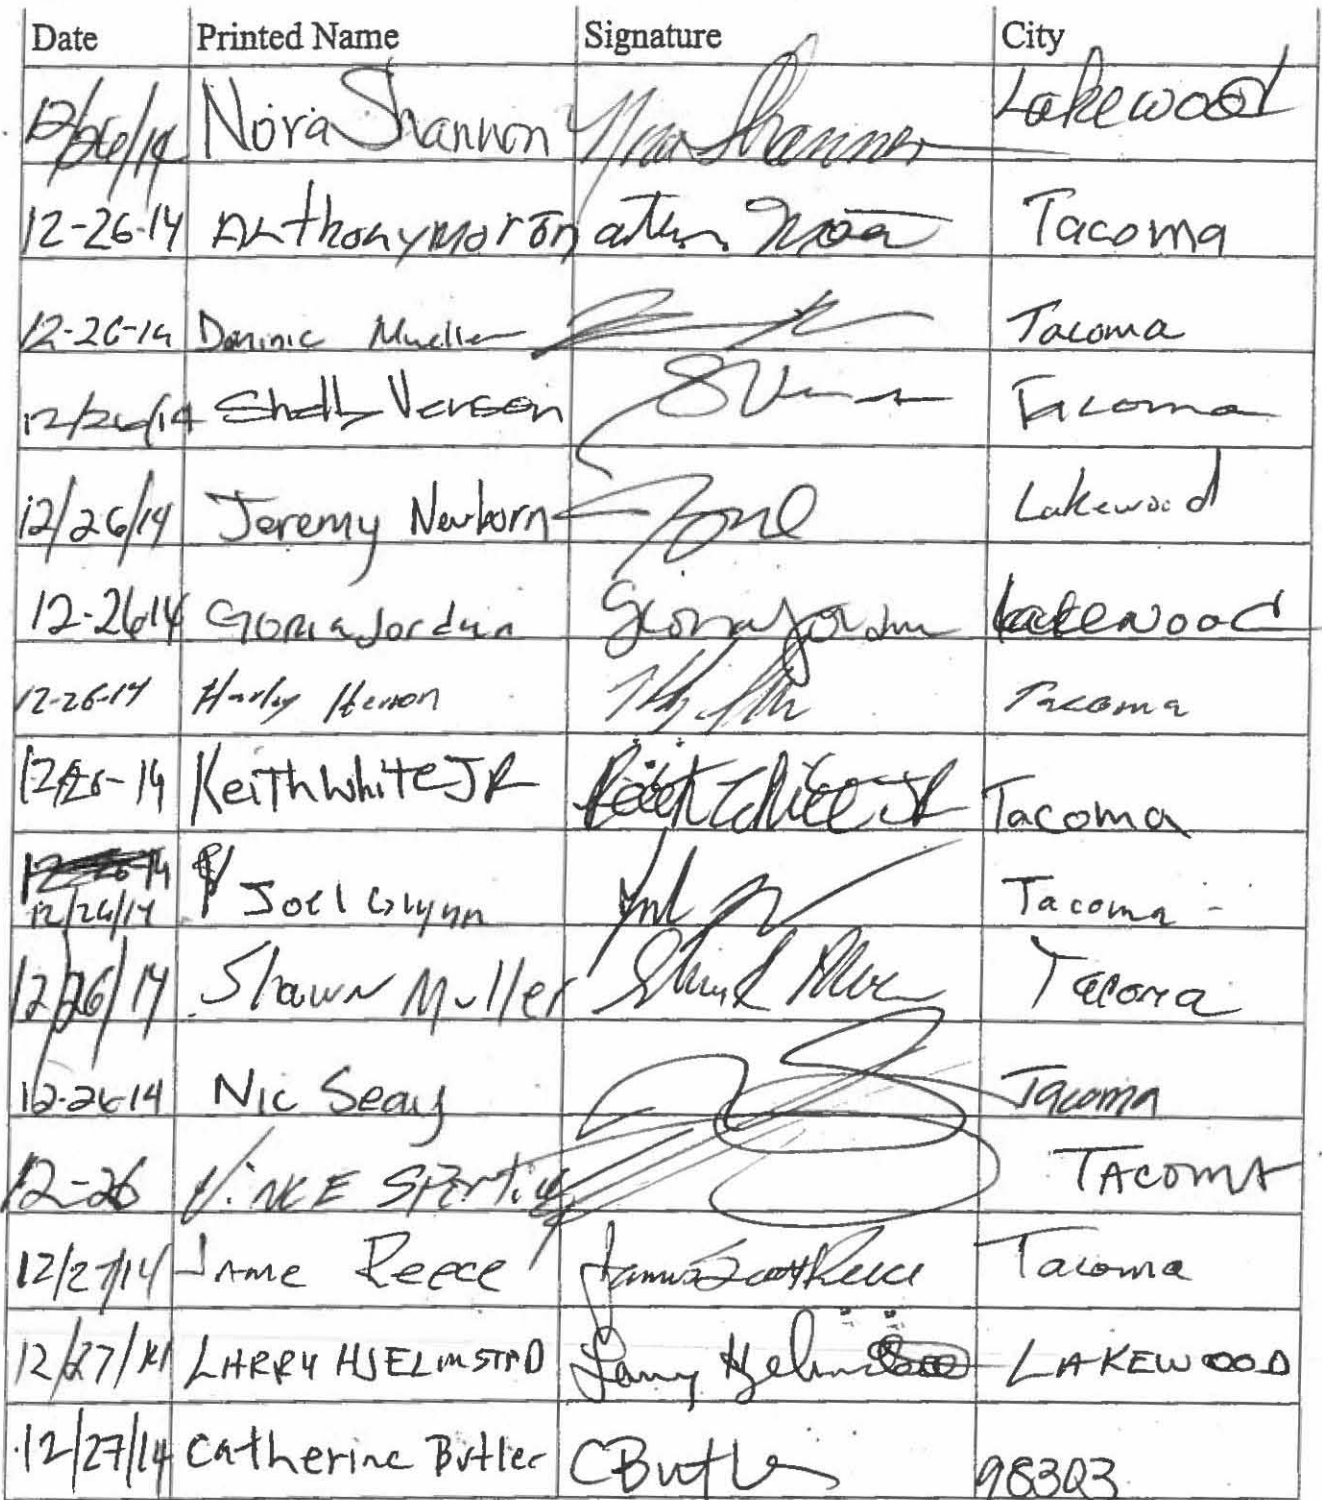 Date Printed Name Signature City
12/26/14 Nora Shannon Nora Shannon Lakewood
12-26-14 Anthony Morton Tacoma
12-26-14 Dominic Mueller Tacoma
12/26/14 Shelly Verson S Ver Tacoma
12/26/14 Jeremy Newborn Lakewood
12-26-14 Gloria Jordan Gloria Jordan Lakewood
12-26-14 Harley Herron Tacoma
12-26-14 Keith White JR Keith White JR Tacoma
12/26/14 Joel Glynn Tacoma
12/26/14 Shawn Muller Tacoma
12-26-14 Nic Seay Tacoma
12-26 Vince Tacoma
12/27/14 Jame Reece James Scott Reece Tacoma
12/27/14 LARRY HJELMSTAD Larry LAKEWOOD
12/27/14 Catherine Butler CButler 98303